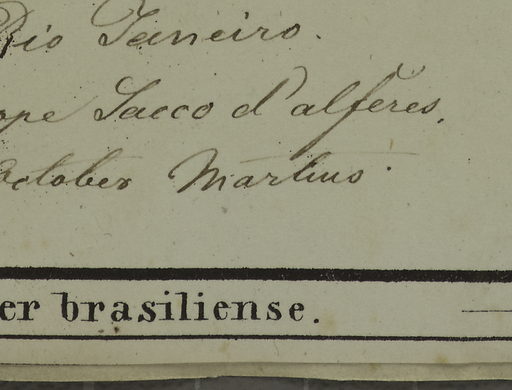 Rio Janeiro.
ope Sacco d'alferes,
October Martius
er brasiliense.